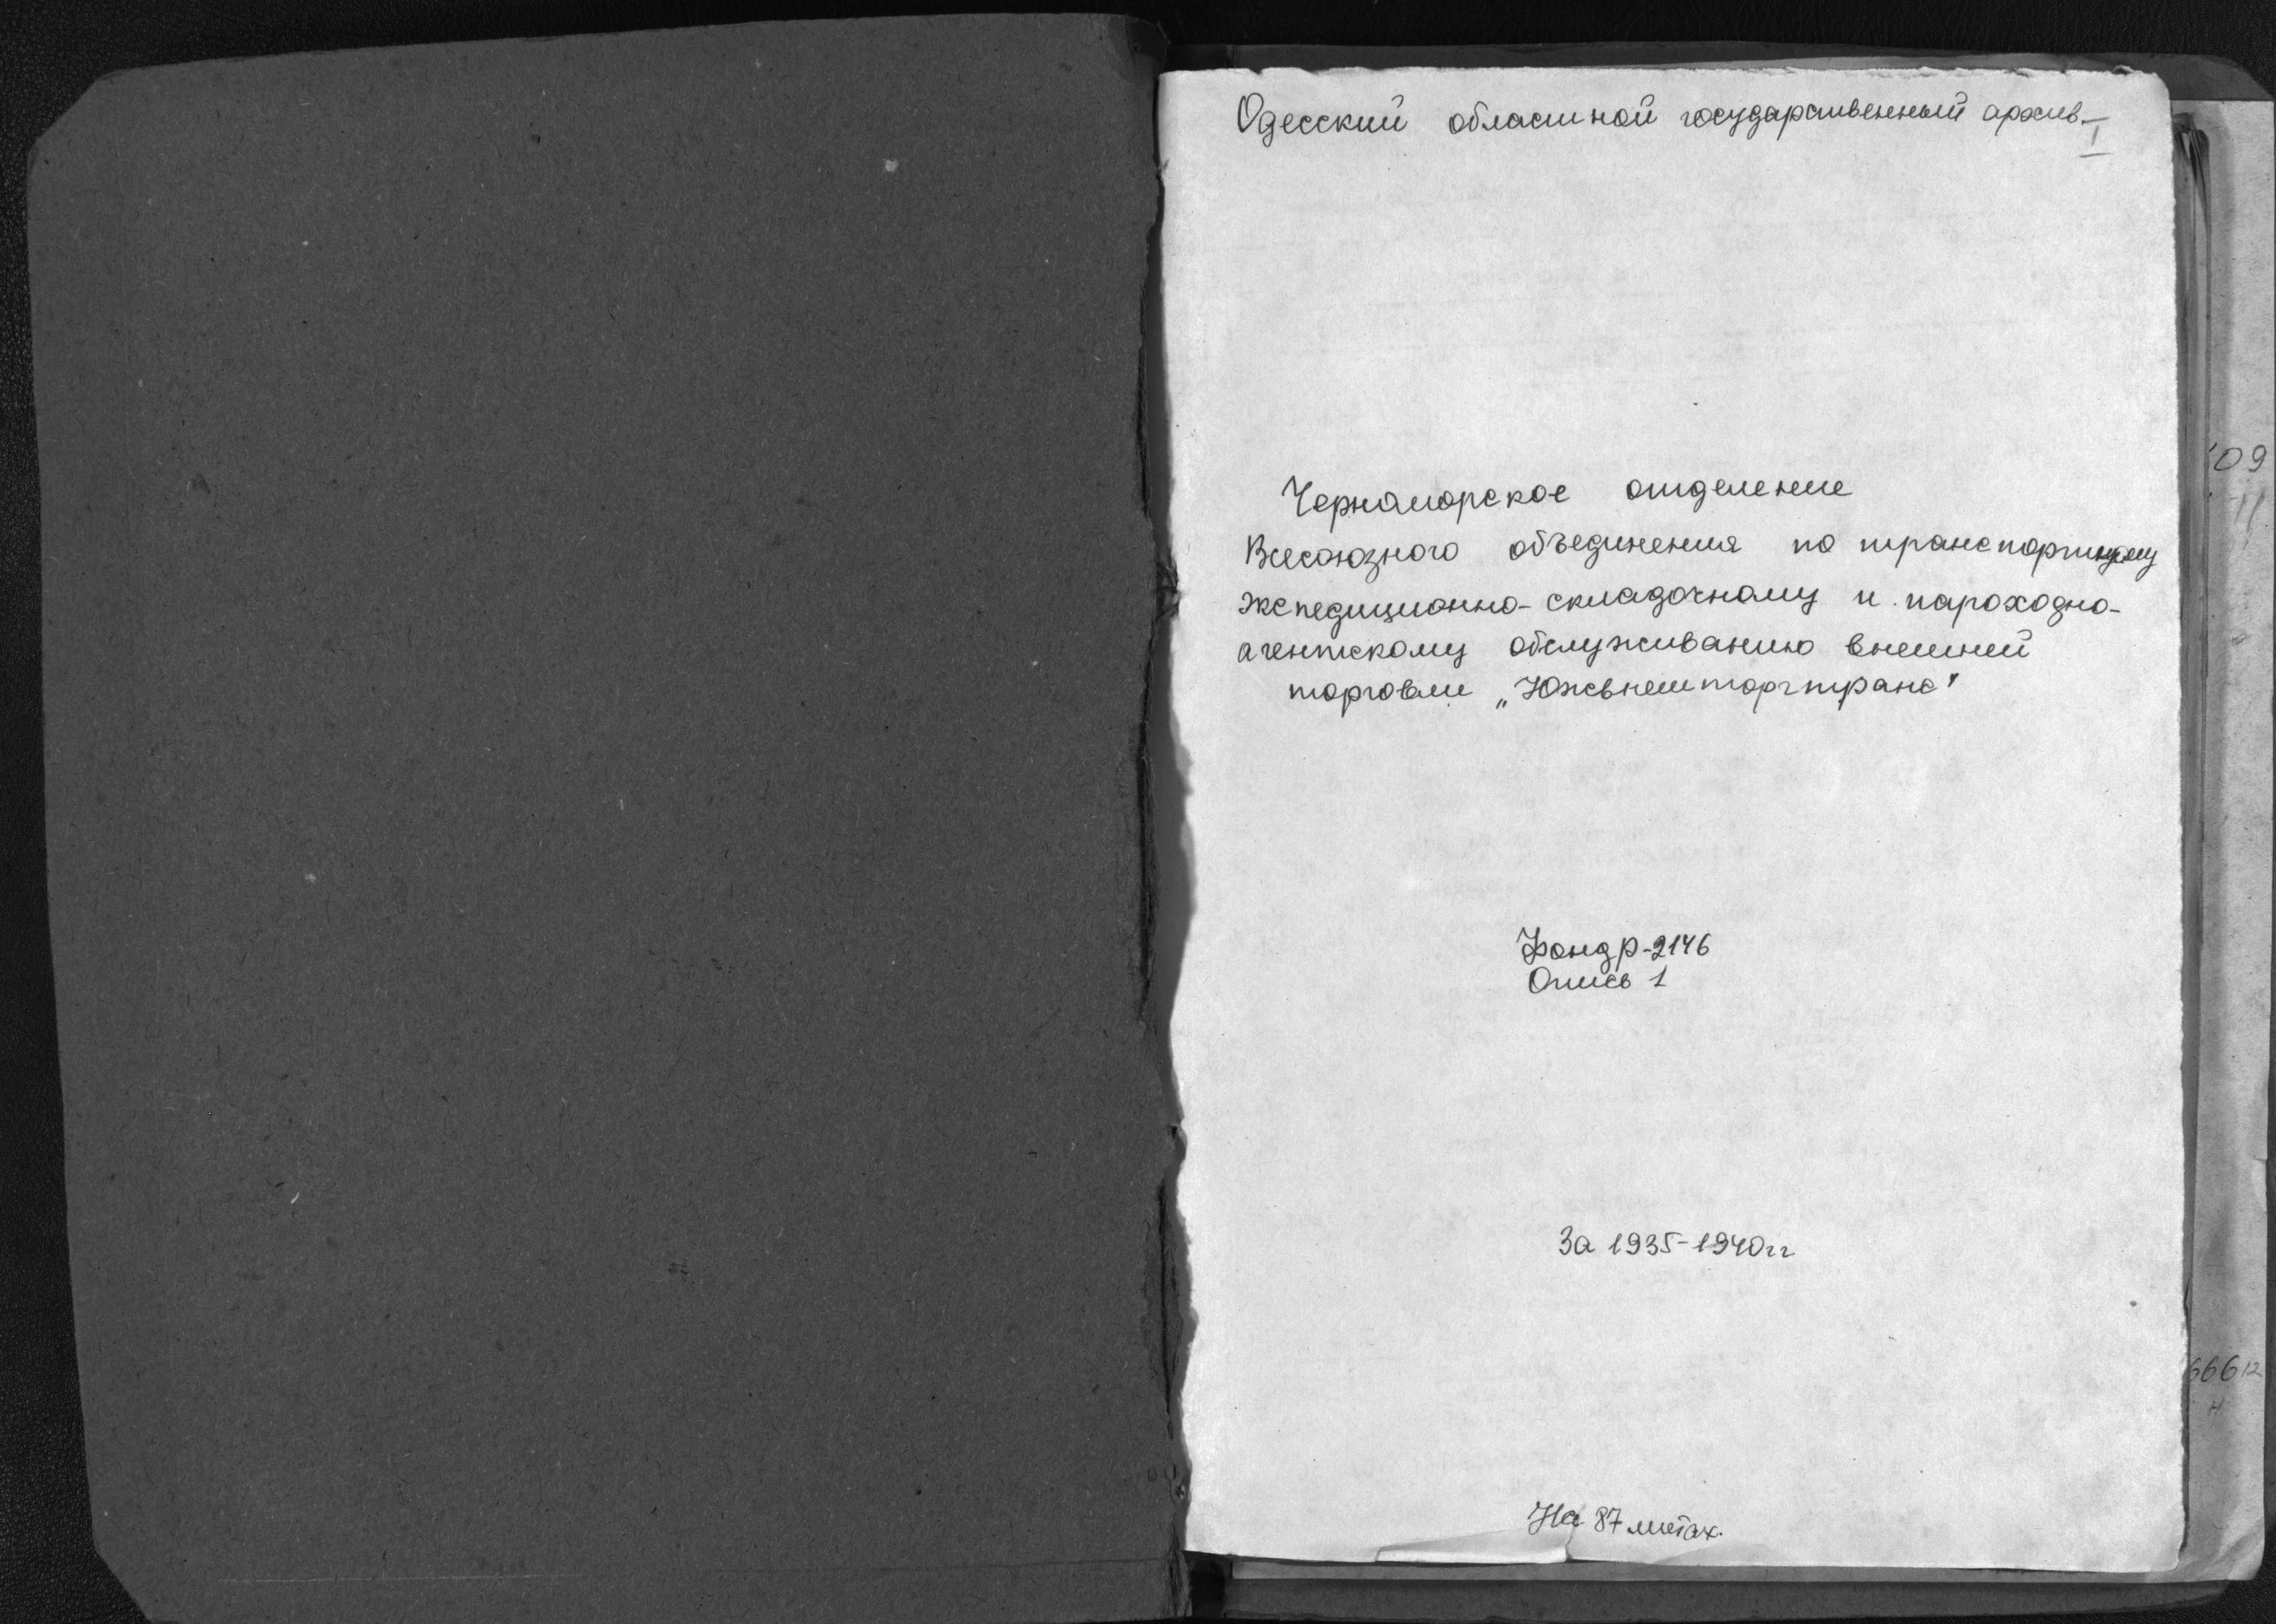 Одесский областной государственный архив
I
Черноморское отделение
Всесоюзного объединения по транспортному
экспедиционно-складочному и пароходно-
агентскому обслуживанию внешней
торговли „Южвнешторгтранс"
Фонд Р-2146
Опись 1
За 1935-1940 гг
На 87 листах.
09
11
66612